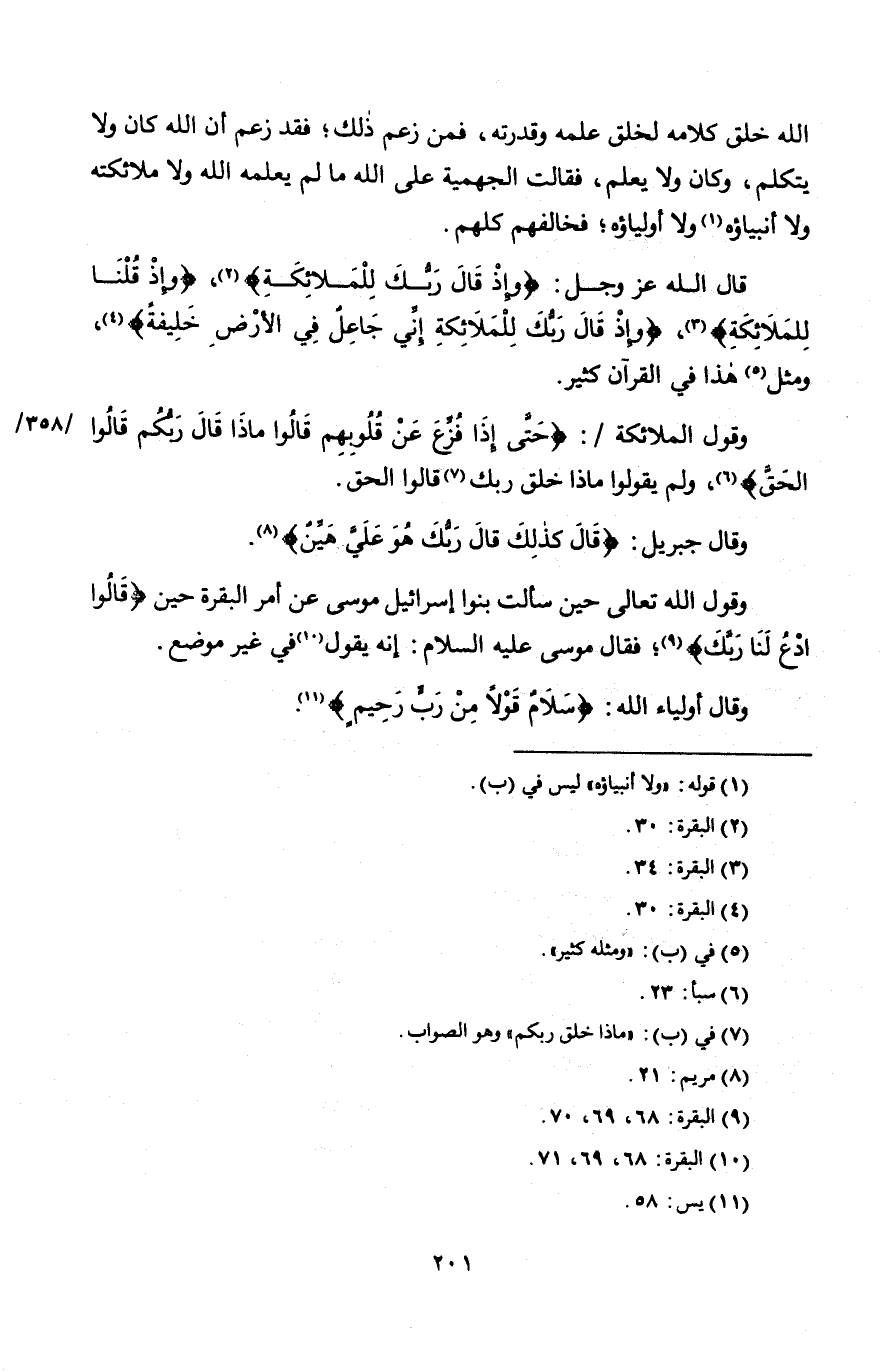 الله خلق كلامه لخلق علمه وقدرته، فمن زعم ذٰلك؛ فقد زعم أن الله كان ولا
يتكلم، وكان ولا يعلم، فقالت الجهمية على الله ما لم يعلمه الله ولا ملائكته
ولا أنبياؤه(١) ولا أولياؤه؛ فخالفهم كلهم.
قال الله عز وجل: ﴿وإِذْ قَالَ رَبُّكَ لِلْمَلائِكَةِ﴾(٢)، ﴿وإِذْ قُلْنَا
لِلمَلَائِكَةِ﴾(٣)، ﴿وإِذْ قَالَ رَبُّكَ لِلْمَلَائِكةِ إِنِّي جَاعِلٌ فِي الأرْضِ خَلِيفةً﴾(٤)،
ومثل(٥) هٰذا في القرآن كثير.
وقول الملائكة /: ﴿حَتَّى إِذَا فُزِّعَ عَنْ قُلُوبِهِم قَالُوا ماذَا قَالَ رَبُّكُم قَالُوا /٣٥٨/
الحَقَّ﴾(٦)، ولم يقولوا ماذا خلق ربك(٧) قالوا الحق.
وقال جبريل: ﴿قَالَ كذٰلِكَ قالَ رَبُّكَ هُوَ عَلَيَّ هَيِّنٌ﴾(٨).
وقول الله تعالى حين سألت بنوا إسرائيل موسى عن أمر البقرة حين ﴿قَالُوا
ادْعُ لَنَا رَبَّكَ﴾(٩)؛ فقال موسى عليه السلام: إنه يقول(١٠) في غير موضع.
وقال أولياء الله: ﴿سَلَامٌ قَوْلاً مِنْ رَبٍّ رَحِيمٍ﴾(١١).
(١) قوله: «ولا أنبياؤه» ليس في (ب).
(٢) البقرة: ٣٠.
(٣) البقرة: ٣٤.
(٤) البقرة: ٣٠.
(٥) في (ب): «ومثله كثير».
(٦) سبأ: ٢٣.
(٧) في (ب): «ماذا خلق ربكم» وهو الصواب.
(٨) مريم: ٢١.
(٩) البقرة: ٦٨، ٦٩، ٧٠.
(١٠) البقرة: ٦٨، ٦٩، ٧١.
(١١) يس: ٥٨.
٢٠١